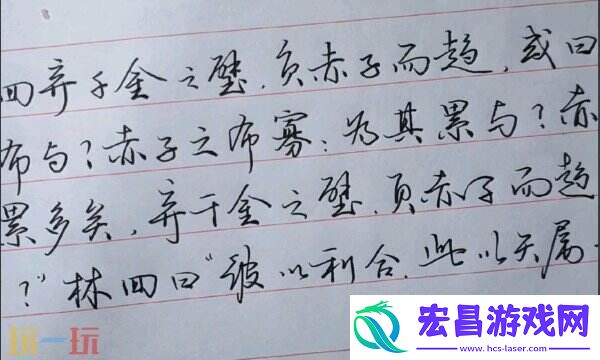 回弃千金之璧,负赤子而趋,或曰
布与?赤子之布寡;为其累与?赤
累多矣,弃千金之璧,负赤子而趋
?”林回曰“彼以利合,此以天属.
玩一玩
宏昌游戏网
www.hcs-laser.com